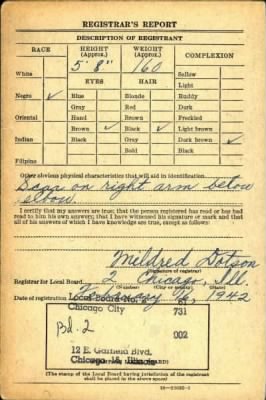 REGISTRAR'S REPORT
DESCRIPTION OF REGISTRANT
RACE HEIGHT (Approx.) WEIGHT (Approx.) COMPLEXION
5' 8" 160
White Sallow
EYES HAIR Light
Negro ✓ Blue Blonde Ruddy
Gray Red Dark
Oriental Hazel Brown Freckled
Brown ✓ Black ✓ Light brown
Indian Black Gray Dark brown ✓
Bald Black
Filipino
Other obvious physical characteristics that will aid in identification
Scar on right arm below
elbow.
I certify that my answers are true; that the person registered has read or has had
read to him his own answers; that I have witnessed his signature or mark and that
all of his answers of which I have knowledge are true, except as follows:
Mildred Dotson
(Signature of registrar)
Registrar for Local Board 2 Chicago, Ill.
(Number) (City or county) (State)
Date of registration February 16, 1942
Local Board No. 2
Chicago City 731
Bd. 2 002
12 E. Garfield Blvd.
Chicago 15, Illinois
(The stamp of the Local Board having jurisdiction of the registrant
shall be placed in the above space)